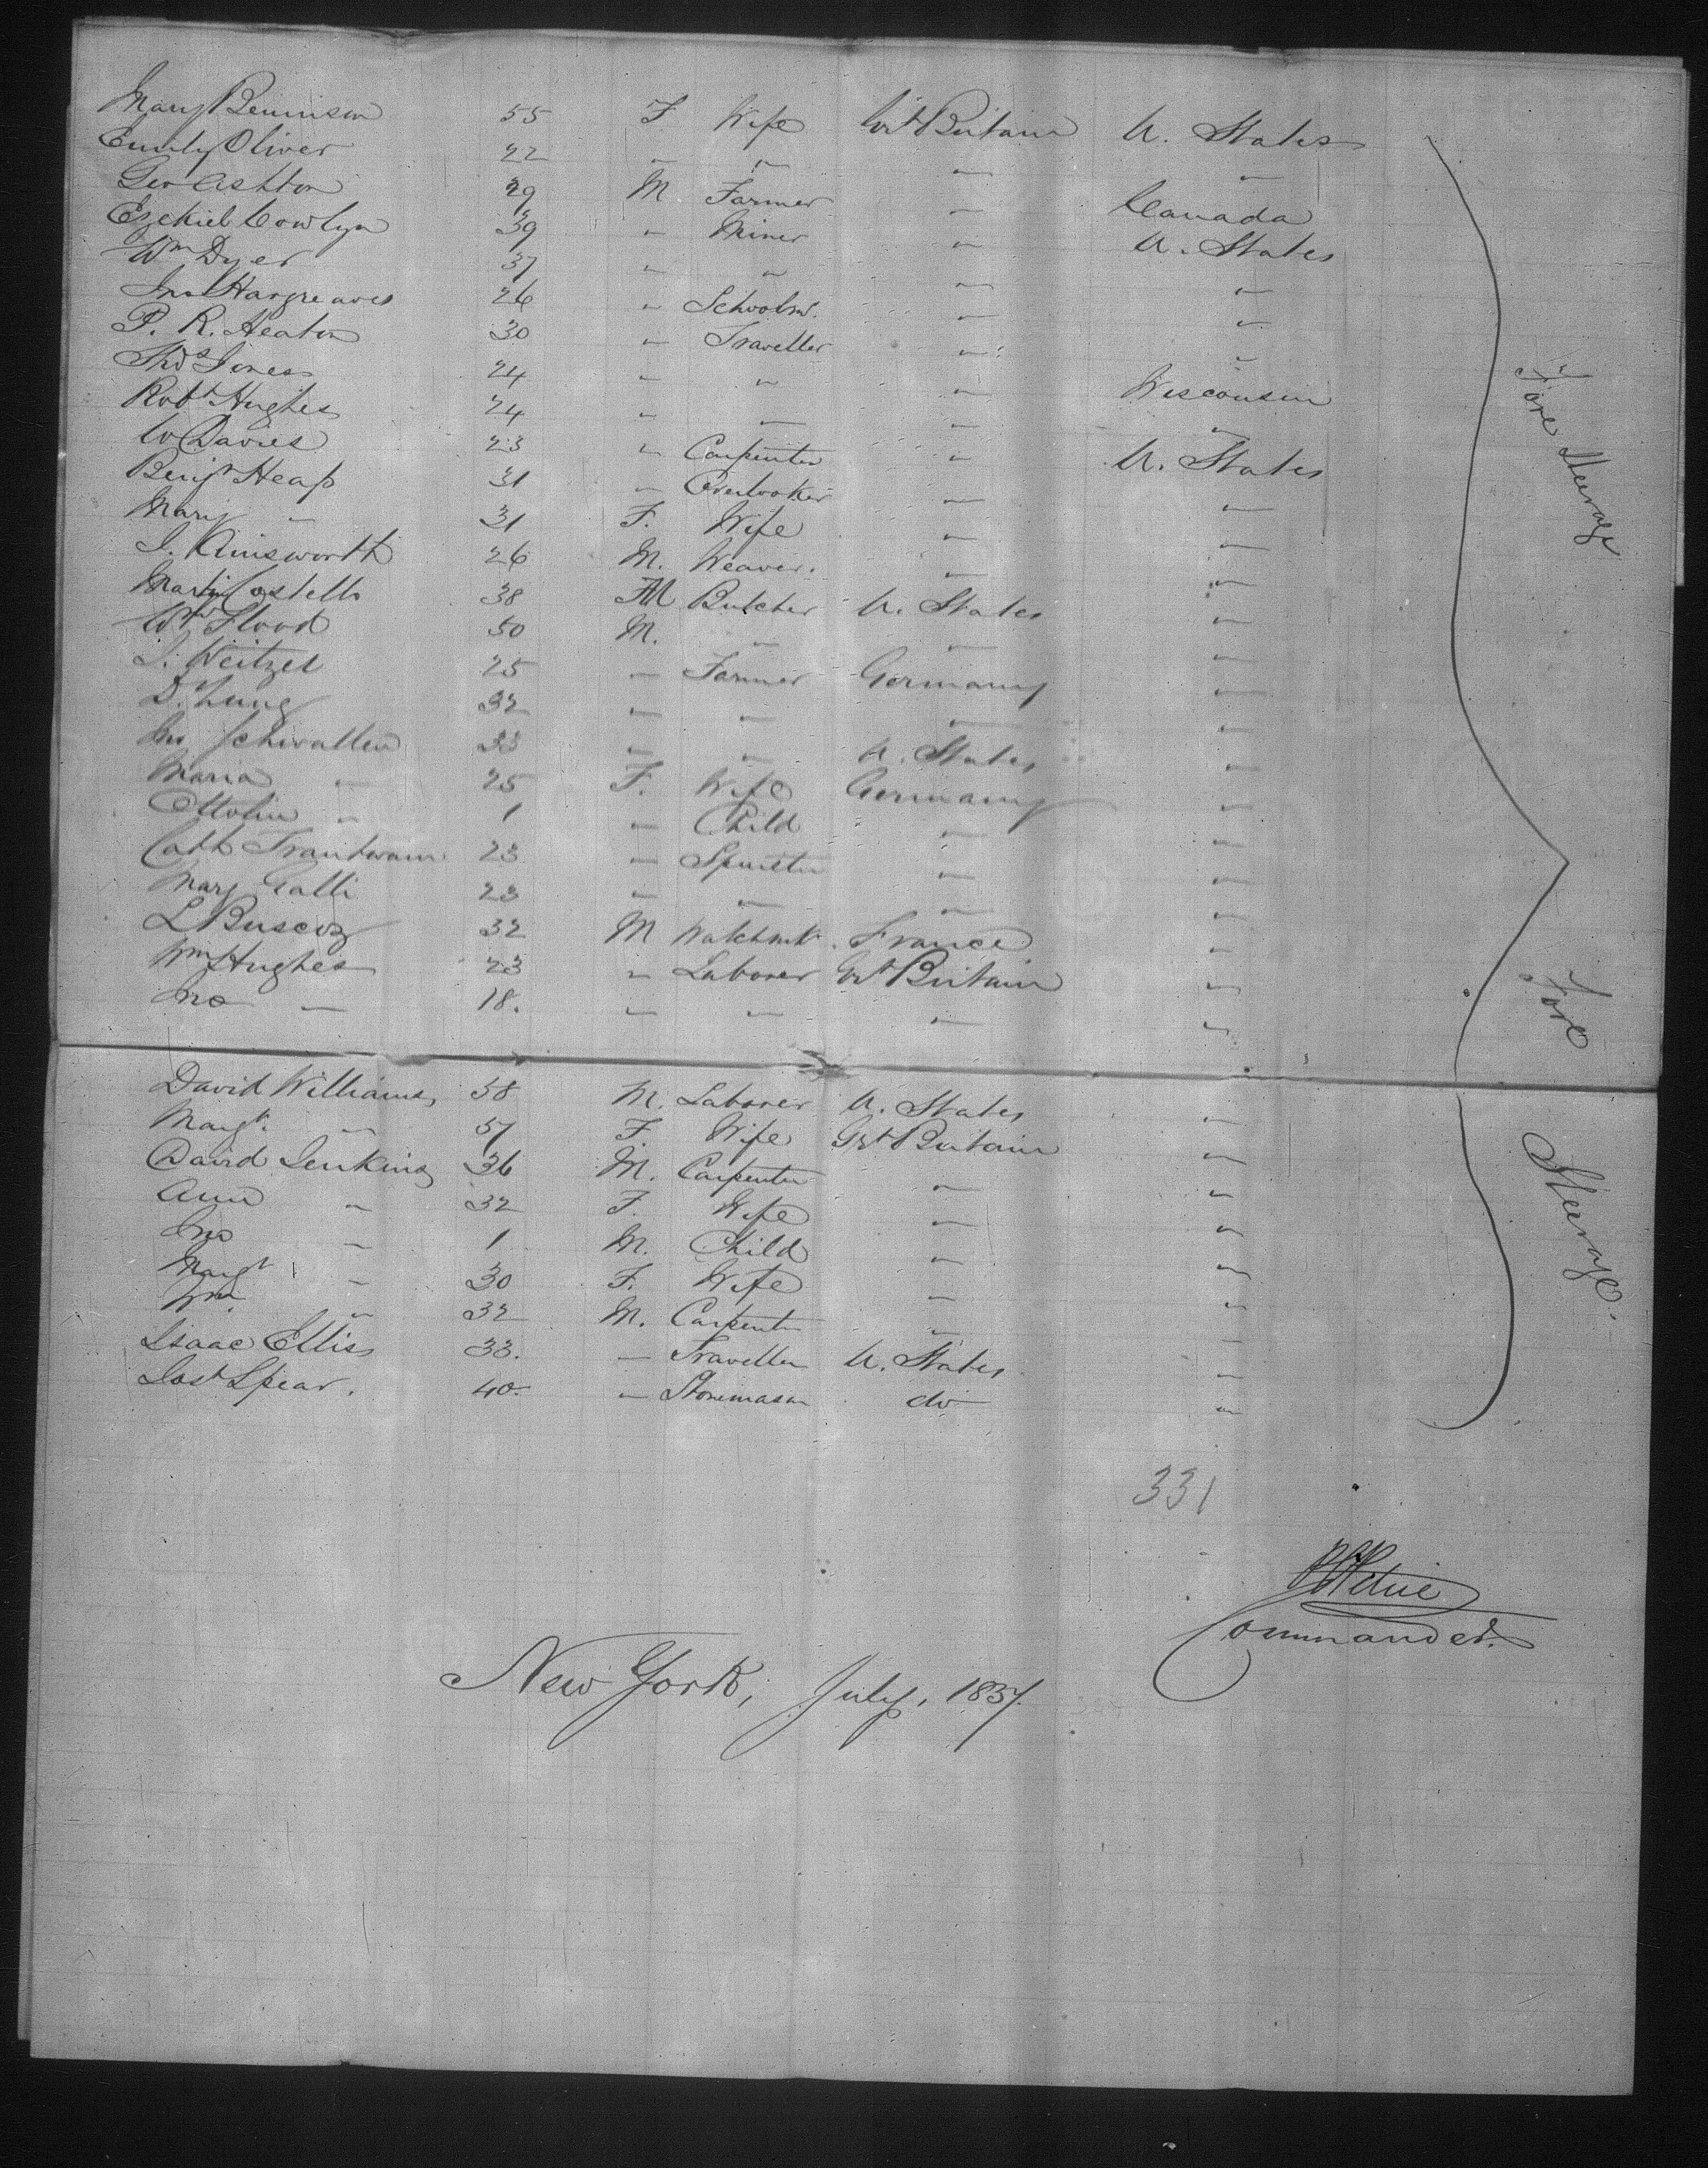 Mary Bennison 55 F Wife Grt Britain U. States
Emily Oliver 22 " " " "
Geo Ashton 29 M Farmer " Canada
Ezekiel Cowlyn 39 " Miner " U. States
Wm Dyer 37 " " " "
Jno Hargreaves 26 " Schoolm. " "
P. R. Heaton 30 " Traveller " "
Thos Jones 24 " " " Wisconsin
Robt Hughes 24 " " " "
W Davies 23 " Carpenter " U. States
Benjn Heap 31 " Overlooker " "
Mary " 31 F. Wife " "
J. Ainsworth 26 M. Weaver. " "
Martin Costello 38 M Butcher U. States "
Wm Flood 50 M. " " "
J. Weitzel 25 " Farmer Germany "
D. Lung 32 " " " "
Jno Schwallen 33 " " U. States "
Maria " 25 F. Wife Germany "
Ottolin " 1 " Child " "
Cath Trautwam 23 " Spinster " "
Mary Galli 23 " " " "
L Buscoz 32 M Watchmk. France "
Wm Hughes 23 " Laborer Grt Britain "
Jno " 18. " " " "
David Williams 58 M. Laborer U. States "
Margt. " 57 F. Wife Grt Britain "
David Jenkins 36 M. Carpenter " "
Ann " 32 F. Wife " "
Jno " 1 M. Child " "
Margt " 30 F. Wife " "
Wm. " 32 M. Carpenter " "
Isaac Ellis 33. " Traveller U. States "
Jost Spear. 40. " Stonemason do "
Fore Steerage
Fore Steerage.
331
Commander.
New York, July, 1857.